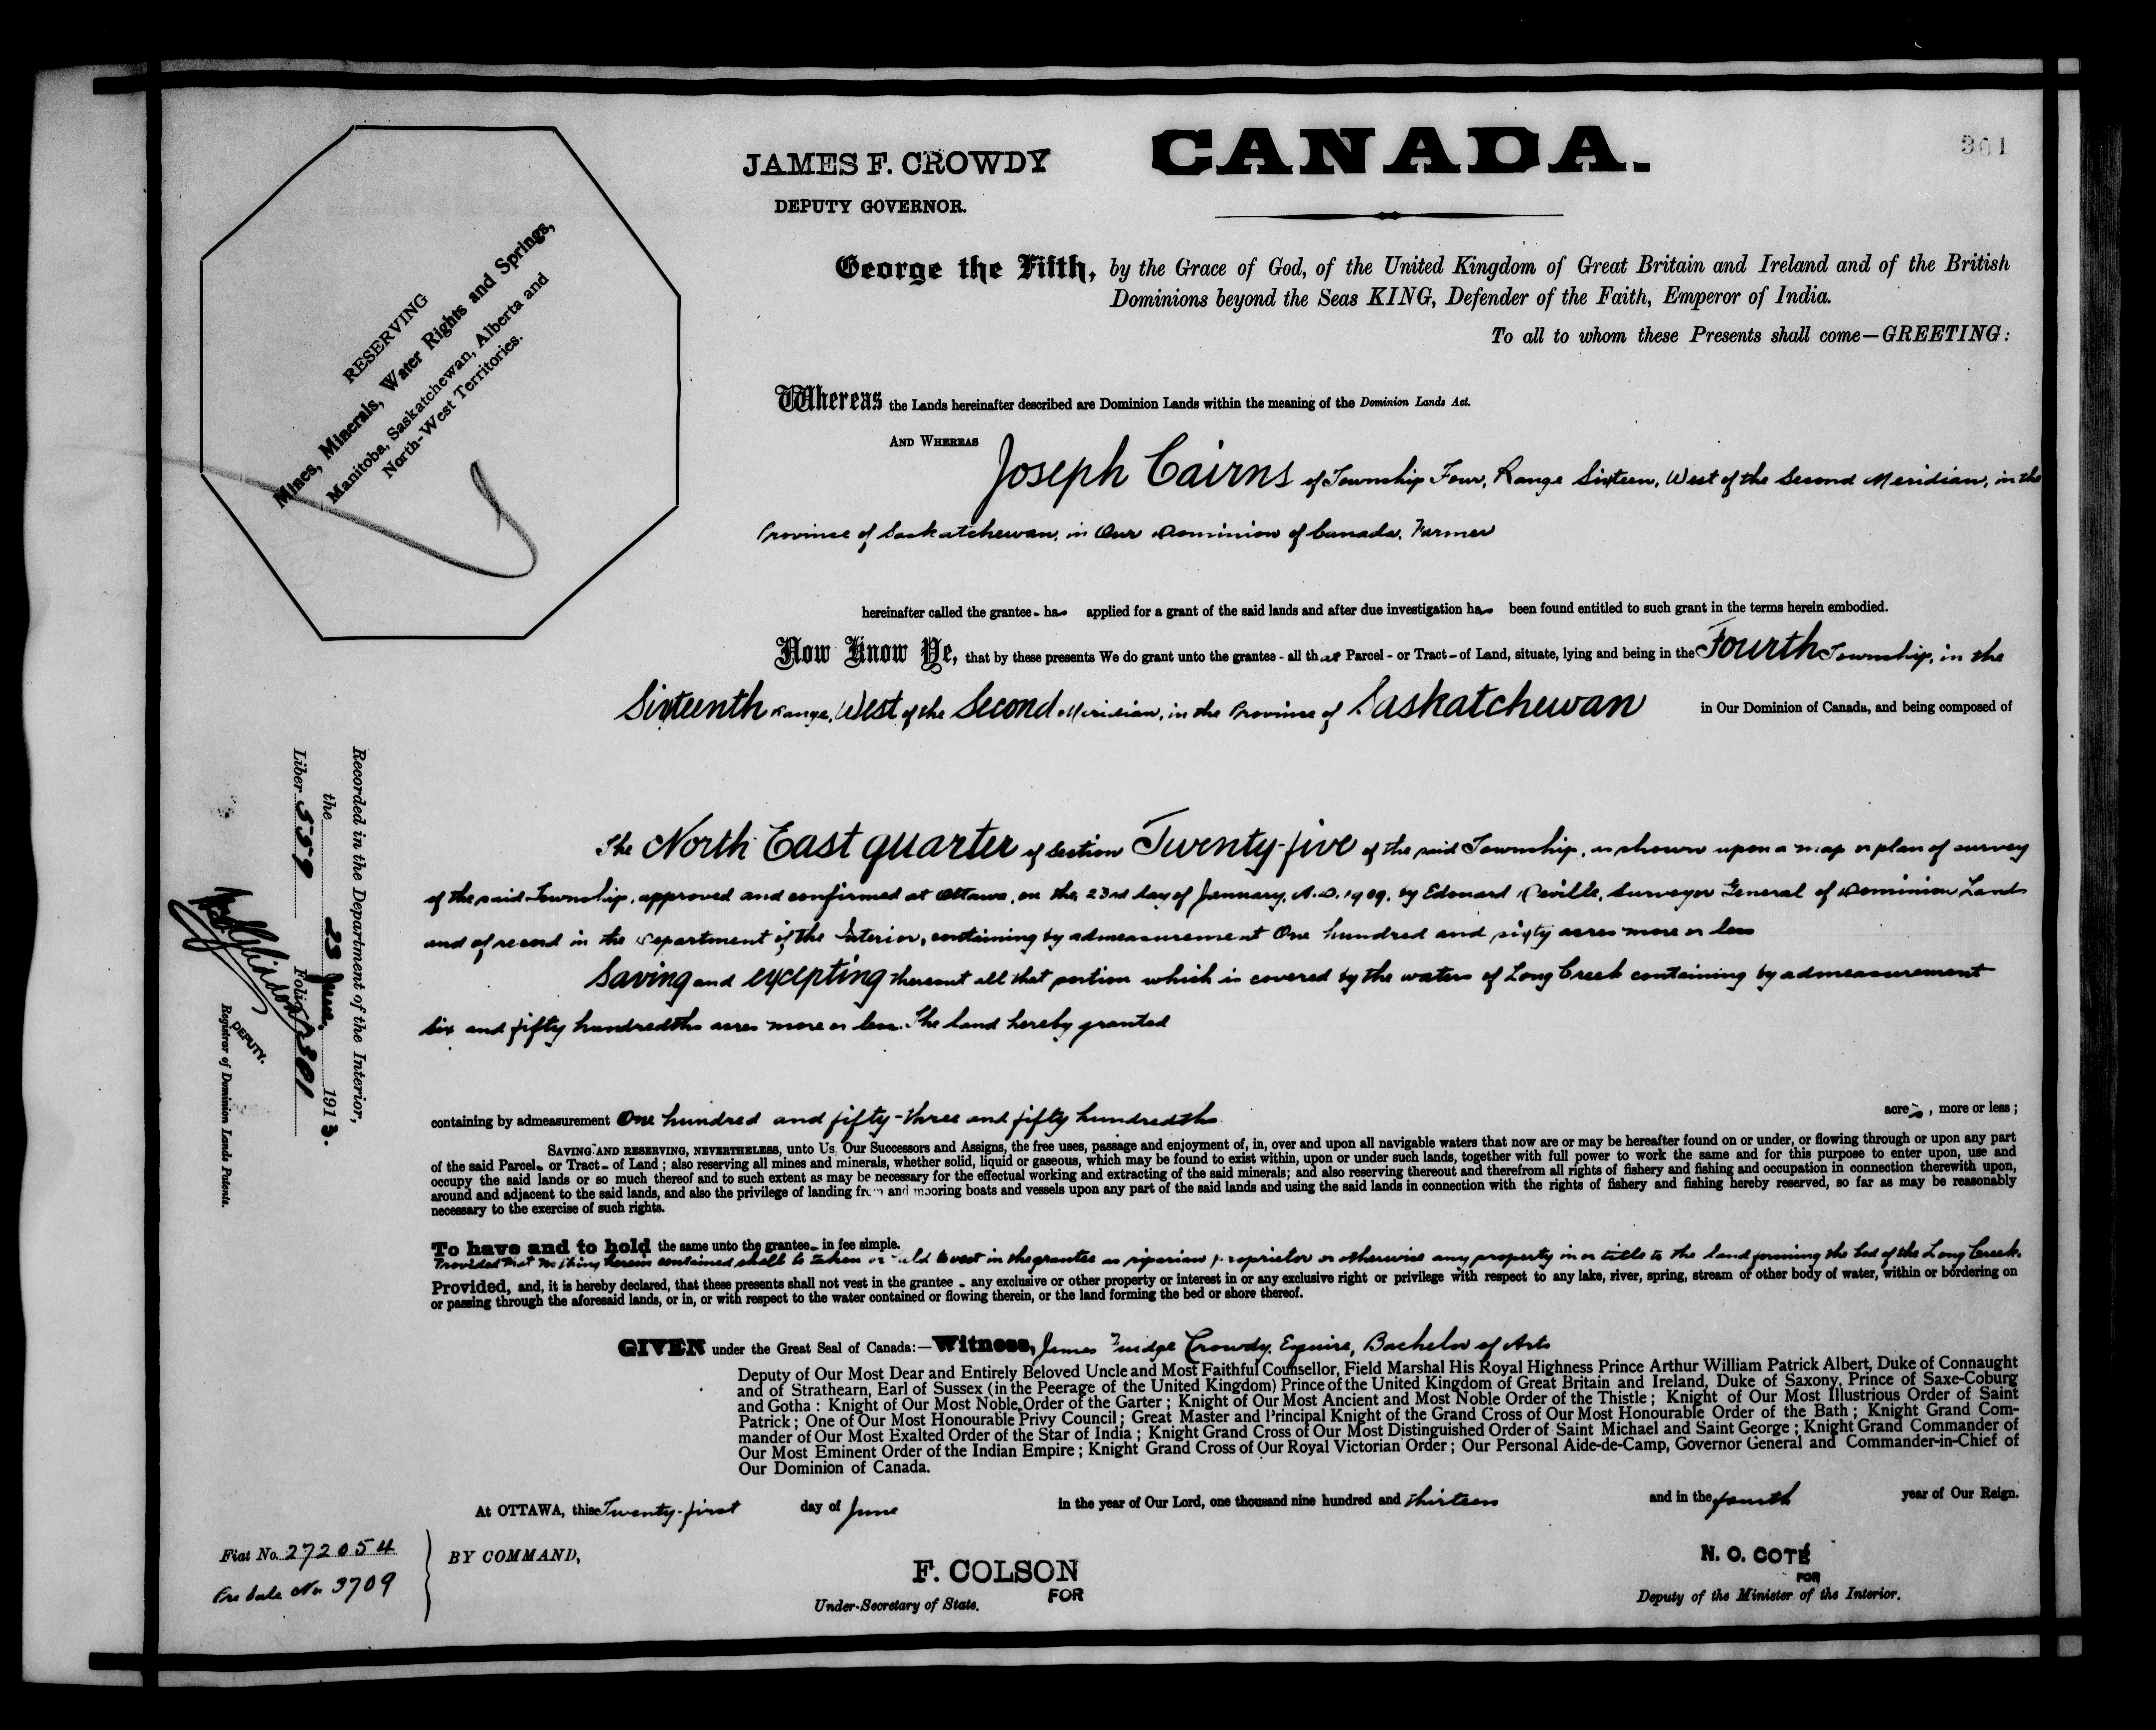 301
JAMES F. CROWDY
DEPUTY GOVERNOR.
CANADA.
RESERVING
Mines, Minerals, Water Rights and Springs,
Manitoba, Saskatchewan, Alberta and
North-West Territories.
George the Fifth, by the Grace of God, of the United Kingdom of Great Britain and Ireland and of the British
Dominions beyond the Seas KING, Defender of the Faith, Emperor of India.
To all to whom these Presents shall come—GREETING:
Whereas the Lands hereinafter described are Dominion Lands within the meaning of the Dominion Lands Act.
AND WHEREAS
Joseph Cairns of Township Four, Range Sixteen, West of the Second Meridian, in the
Province of Saskatchewan, in Our Dominion of Canada, Farmer
hereinafter called the grantee - has applied for a grant of the said lands and after due investigation has been found entitled to such grant in the terms herein embodied.
Now Know Ye, that by these presents We do grant unto the grantee - all that Parcel - or Tract - of Land, situate, lying and being in the Fourth Township, in the
Sixteenth Range, West of the Second Meridian, in the Province of Saskatchewan in Our Dominion of Canada, and being composed of
The North East quarter of section Twenty-five of the said Township, as shown upon a map or plan of survey
of the said Township, approved and confirmed at Ottawa, on the 23rd day of January, A.D. 1909, by Edouard Deville, Surveyor General of Dominion Lands
and of record in the Department of the Interior, containing by admeasurement One hundred and sixty acres more or less
Saving and excepting thereout all that portion which is covered by the waters of Long Creek containing by admeasurement
six and fifty hundredths acres more or less. The land hereby granted
containing by admeasurement One hundred and fifty-three and fifty hundredths acres, more or less;
SAVING AND RESERVING, NEVERTHELESS, unto Us, Our Successors and Assigns, the free uses, passage and enjoyment of, in, over and upon all navigable waters that now are or may be hereafter found on or under, or flowing through or upon any part
of the said Parcel - or Tract - of Land; also reserving all mines and minerals, whether solid, liquid or gaseous, which may be found to exist within, upon or under such lands, together with full power to work the same and for this purpose to enter upon, use and
occupy the said lands or so much thereof and to such extent as may be necessary for the effectual working and extracting of the said minerals; and also reserving thereout and therefrom all rights of fishery and fishing and occupation in connection therewith upon,
around and adjacent to the said lands, and also the privilege of landing from and mooring boats and vessels upon any part of the said lands and using the said lands in connection with the rights of fishery and fishing hereby reserved, so far as may be reasonably
necessary to the exercise of such rights.
To have and to hold the same unto the grantee - in fee simple.
Provided that nothing herein contained shall be taken or held to vest in the grantee as riparian proprietor or otherwise any property in or title to the land forming the bed of the Long Creek.
Provided, and, it is hereby declared, that these presents shall not vest in the grantee - any exclusive or other property or interest in or any exclusive right or privilege with respect to any lake, river, spring, stream of other body of water, within or bordering on
or passing through the aforesaid lands, or in, or with respect to the water contained or flowing therein, or the land forming the bed or shore thereof.
GIVEN under the Great Seal of Canada:—Witness, James Fudge Crowdy, Esquire, Bachelor of Arts
Deputy of Our Most Dear and Entirely Beloved Uncle and Most Faithful Counsellor, Field Marshal His Royal Highness Prince Arthur William Patrick Albert, Duke of Connaught
and of Strathearn, Earl of Sussex (in the Peerage of the United Kingdom) Prince of the United Kingdom of Great Britain and Ireland, Duke of Saxony, Prince of Saxe-Coburg
and Gotha: Knight of Our Most Noble Order of the Garter; Knight of Our Most Ancient and Most Noble Order of the Thistle; Knight of Our Most Illustrious Order of Saint
Patrick; One of Our Most Honourable Privy Council; Great Master and Principal Knight of the Grand Cross of Our Most Honourable Order of the Bath; Knight Grand Com-
mander of Our Most Exalted Order of the Star of India; Knight Grand Cross of Our Most Distinguished Order of Saint Michael and Saint George; Knight Grand Commander of
Our Most Eminent Order of the Indian Empire; Knight Grand Cross of Our Royal Victorian Order; Our Personal Aide-de-Camp, Governor General and Commander-in-Chief of
Our Dominion of Canada.
At OTTAWA, this Twenty-first day of June in the year of Our Lord, one thousand nine hundred and thirteen and in the fourth year of Our Reign.
Fiat No. 272054
Pre Sale No 3709
BY COMMAND,
F. COLSON
FOR
Under-Secretary of State.
N. O. COTÉ
FOR
Deputy of the Minister of the Interior.
Recorded in the Department of the Interior,
the 23 June, 1913.
Liber 559 Folio 301
DEPUTY.
Registrar of Dominion Lands Patents.